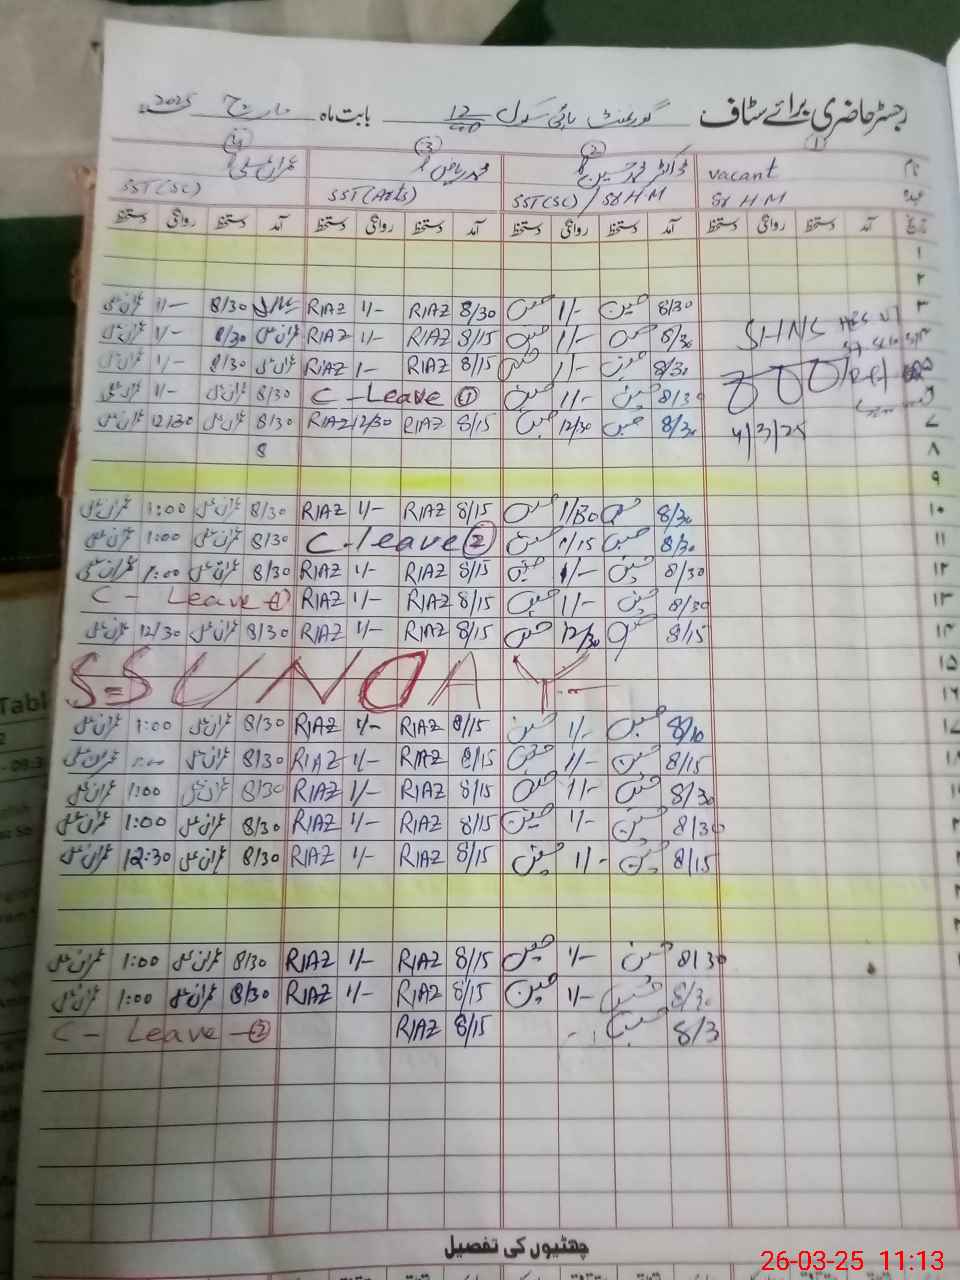 رجسٹر حاضری برائے سٹاف گورنمنٹ ہائی سکول 12 بابت ماہ مارچ 2025
① ② ③ ④
نام vacant ڈاکٹر محمد حسین محمد ریاض عمران علی
عہدہ Sr H M SST(SC)/Sr H M SST(Arts) SST(SC)
تاریخ آمد دستخط روانگی دستخط آمد دستخط روانگی دستخط آمد دستخط روانگی دستخط آمد دستخط روانگی دستخط
۱
۲
۳ 8/30 حسین 1/- حسین 8/30 RIAZ 1/- RIAZ 8/30 1/- عمران علی
8/30 1/- حسین 8/15 RIAZ 1/- RIAZ عمران علی 8/30 1/- عمران علی
8/30 حسین 1/- حسین 8/15 RIAZ 1- RIAZ عمران علی 8/30 1/- عمران علی
8/30 حسین 1/- حسین C-Leave ① 8/30 عمران علی 1/- عمران علی
4/3/25
۷ 8/30 حسین 12/30 حسین 8/15 RIAZ 12/30 RIAZ 8/30 عمران علی 12/30 عمران علی
۸ 8
۹
۱۰ 8/30 1/30 حسین 8/15 RIAZ 1/- RIAZ 8/30 عمران علی 1:00 عمران علی
۱۱ 8/30 حسین 1/15 حسین C-leave ② 8/30 عمران علی 1:00 عمران علی
۱۲ 8/30 حسین 1/- حسین 8/15 RIAZ 1/- RIAZ 8/30 عمران علی 1:00 عمران علی
۱۳ 8/30 حسین 1/- حسین 8/15 RIAZ 1/- RIAZ C- Leave ①
۱۴ 8/15 12/30 حسین 8/15 RIAZ 1/- RIAZ 8/30 عمران علی 12/30 عمران علی
۱۵
۱۶ S=SUNDAY-
8/10 حسین 1/- حسین 8/15 RIAZ 1/- RIAZ 8/30 عمران علی 1:00 عمران علی
8/15 حسین 1/- حسین 8/15 RIAZ 1/- RIAZ 8/30 عمران علی 1:00 عمران علی
8/30 حسین 1/- حسین 8/15 RIAZ 1/- RIAZ 8/30 عمران علی 1:00 عمران علی
8/30 حسین 1/- حسین 8/15 RIAZ 1/- RIAZ 8/30 عمران علی 1:00 عمران علی
8/15 حسین 1/- حسین 8/15 RIAZ 1/- RIAZ 8/30 عمران علی 12:30 عمران علی
8/30 حسین 1/- حسین 8/15 RIAZ 1/- RIAZ 8/30 عمران علی 1:00 عمران علی
8/30 حسین 1/- حسین 8/15 RIAZ 1/- RIAZ 8/30 عمران علی 1:00 عمران علی
8/3 حسین 8/15 RIAZ C- Leave -②
چھٹیوں کی تفصیل
26-03-25 11:13